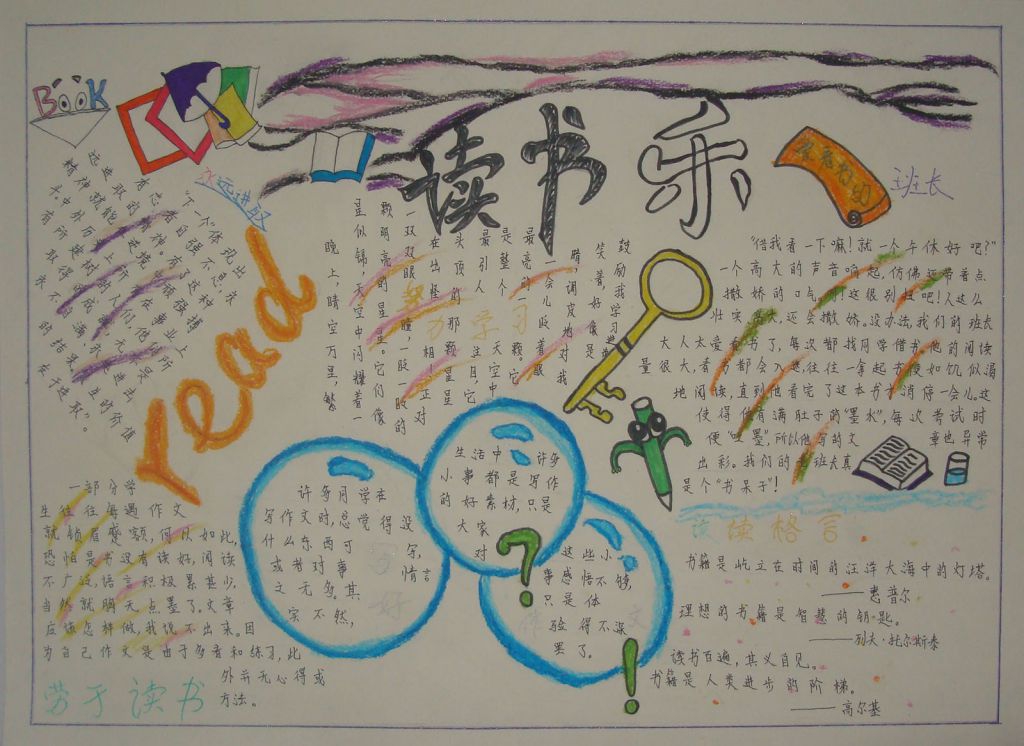 BOOK
读书乐
班长
"借我看一下嘛！就一个午休好吧？"
一个高大的声音响起，仿佛还带着点
撒娇的口气。
壮实高大，还会撒娇。没办法，我们的班大
大人太爱看书了，每次都找同学借书，他的阅读
量很大，看书都会入迷，往往一拿起书便如饥似渴
地阅读，直到他看完了这本书才消停一会儿。这
使得他有满肚子的"墨水"，每次考试时
便"吐墨"，所以他写的文章也异常
出彩。我们的老班大真
是个"书呆子"！
永远进取
"下一个"体现出
有志者自强不息，永
远进取的精神。有了这种
精神就能在逆境中顽强拼
搏
read
努力学习
鼓励我学习
笑着，好像是
睛，调皮地对我
一会儿眨着眼
最亮的一颗。它
是整个天空中
最引人注目，它
头顶的那颗星星
在出怪相！正对
一双双眼瞳，一眨一眨的
颗明亮的星星。它们像
星似锦，天空中闪耀着一
晚上，晴空万里，繁
许多同学在
写作文时，总觉得没
什么东西可写，
或者对事情言
之无物。其
实不然，
生活中许多
小事都是写作
的好素材，只是
大家对
这些小
事感悟不够，
只是体
验得不深
罢了。
？
！
一部分学
生往往每遇作文
就锁眉蹙额，何以如此，
恐怕是书没有读好，阅读
不广泛，语言积极累甚少，
当然就胸无点墨了。文章
应该怎样做，我说不出来，因
为自己作文是由于多看和练习，此
外并无心得或
方法。
劳于读书
读读格言
书籍是屹立在时间的汪洋大海中的灯塔。
——惠普尔
理想的书籍是智慧的钥匙。
——列夫·托尔斯泰
读书百遍，其义自见。
书籍是人类进步的阶梯。
——高尔基